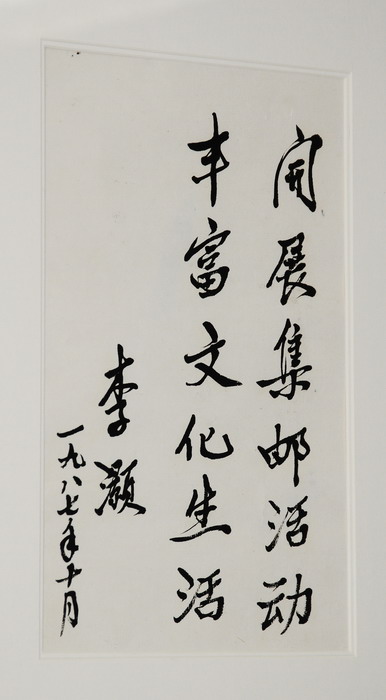 開展集邮活动
丰富文化生活
李灏
一九八七年十月